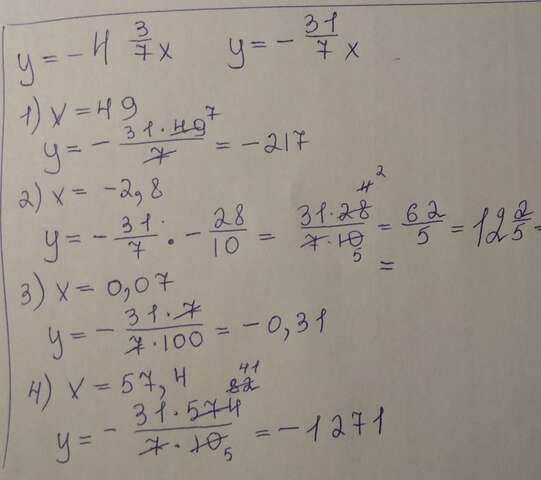 y = -4 3/7 x    y = - 31/7 x
1) x = 49
y = - 31·49/7 7 = -217
2) x = -2,8
y = - 31/7 · - 28/10 = 31·28/7·10 4 2 5 = 62/5 = 12 2/5 =
=
3) x = 0,07
y = - 31·7/7·100 = -0,31
4) x = 57,4
y = - 31·574/7·10 82 41 5 = -1271